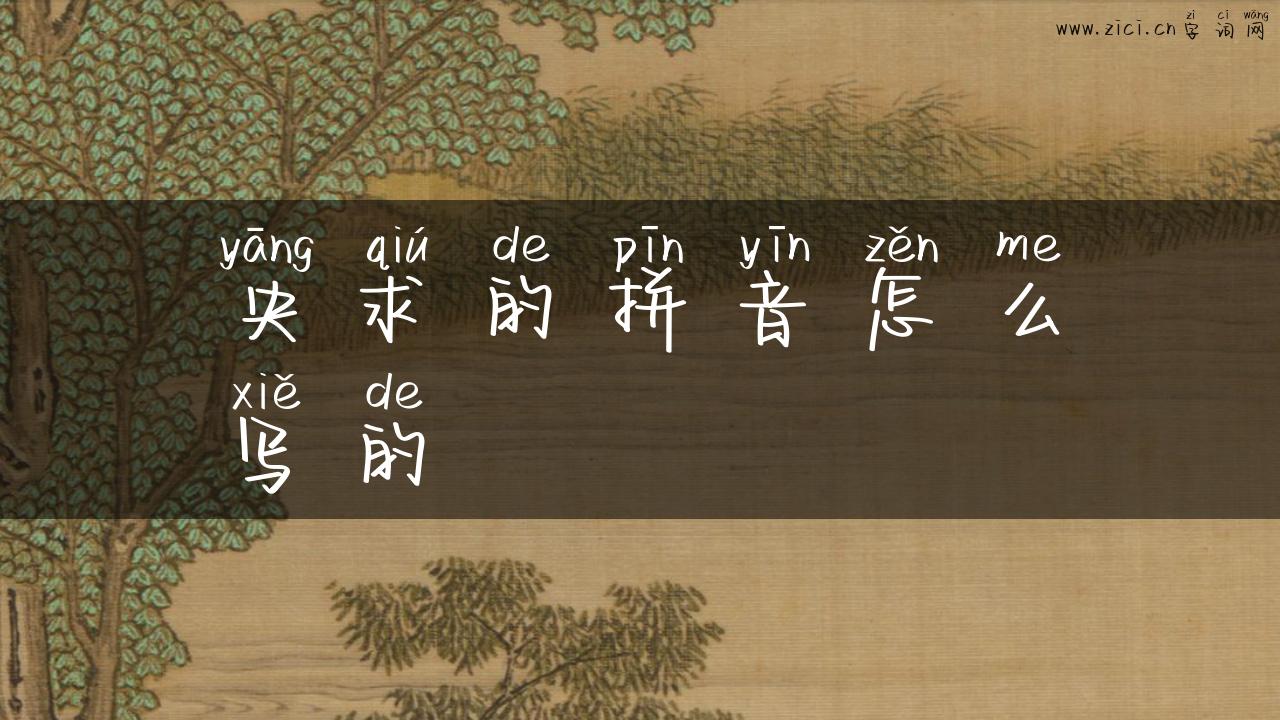 zì cí wǎng
www.zici.cn 字词网
yāng qiú de pīn yīn zěn me
央求的拼音怎么
xiě de
写的